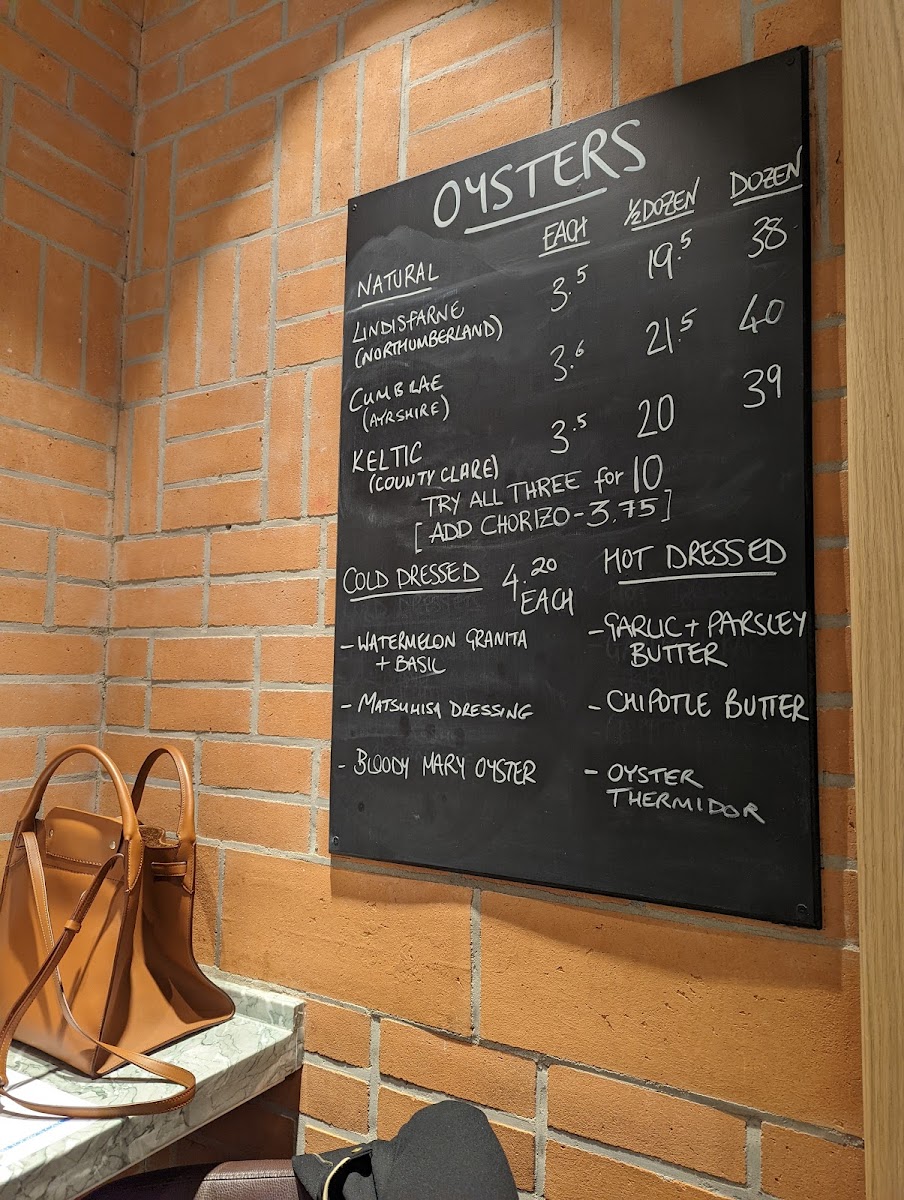 OYSTERS
EACH ½ DOZEN DOZEN
NATURAL
LINDISFARNE 3.5 19.5 38
(NORTHUMBERLAND)
CUMBRAE 3.6 21.5 40
(AYRSHIRE)
KELTIC 3.5 20 39
(COUNTY CLARE)
TRY ALL THREE for 10
[ADD CHORIZO - 3.75]
COLD DRESSED 4.20 EACH HOT DRESSED
- WATERMELON GRANITA
+ BASIL
- MATSUHISA DRESSING
- BLOODY MARY OYSTER
- GARLIC + PARSLEY
BUTTER
- CHIPOTLE BUTTER
- OYSTER
THERMIDOR